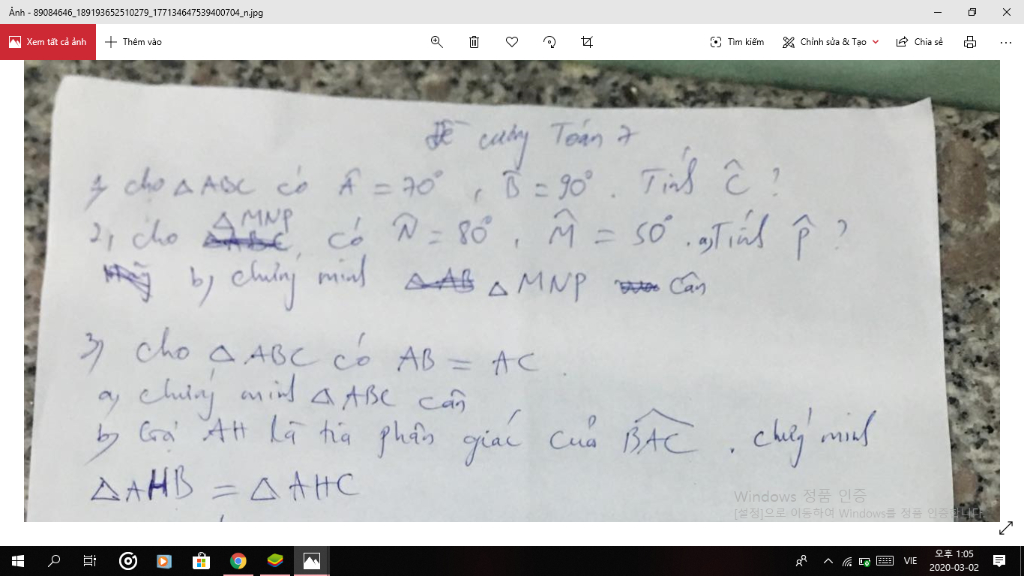 Ảnh - 89084646_189193652510279_177134647539400704_n.jpg
Xem tất cả ảnh
Thêm vào
Tìm kiếm
Chỉnh sửa & Tạo
Chia sẻ
Đề cương Toán 7
1, cho △ABC có Â = 70°, B̂ = 90°. Tính Ĉ ?
△MNP
2, cho có N̂ = 80°, M̂ = 50°. a, Tính P̂ ?
b, chứng minh △MNP cân
3, cho △ABC có AB = AC.
a, chứng minh △ABC cân
b, Gọi AH là tia phân giác của BAC. chứng minh
△AHB = △AHC
Windows 정품 인증
[설정]으로 이동하여 Windows를 정품 인증합니다.
VIE
오후 1:05
2020-03-02